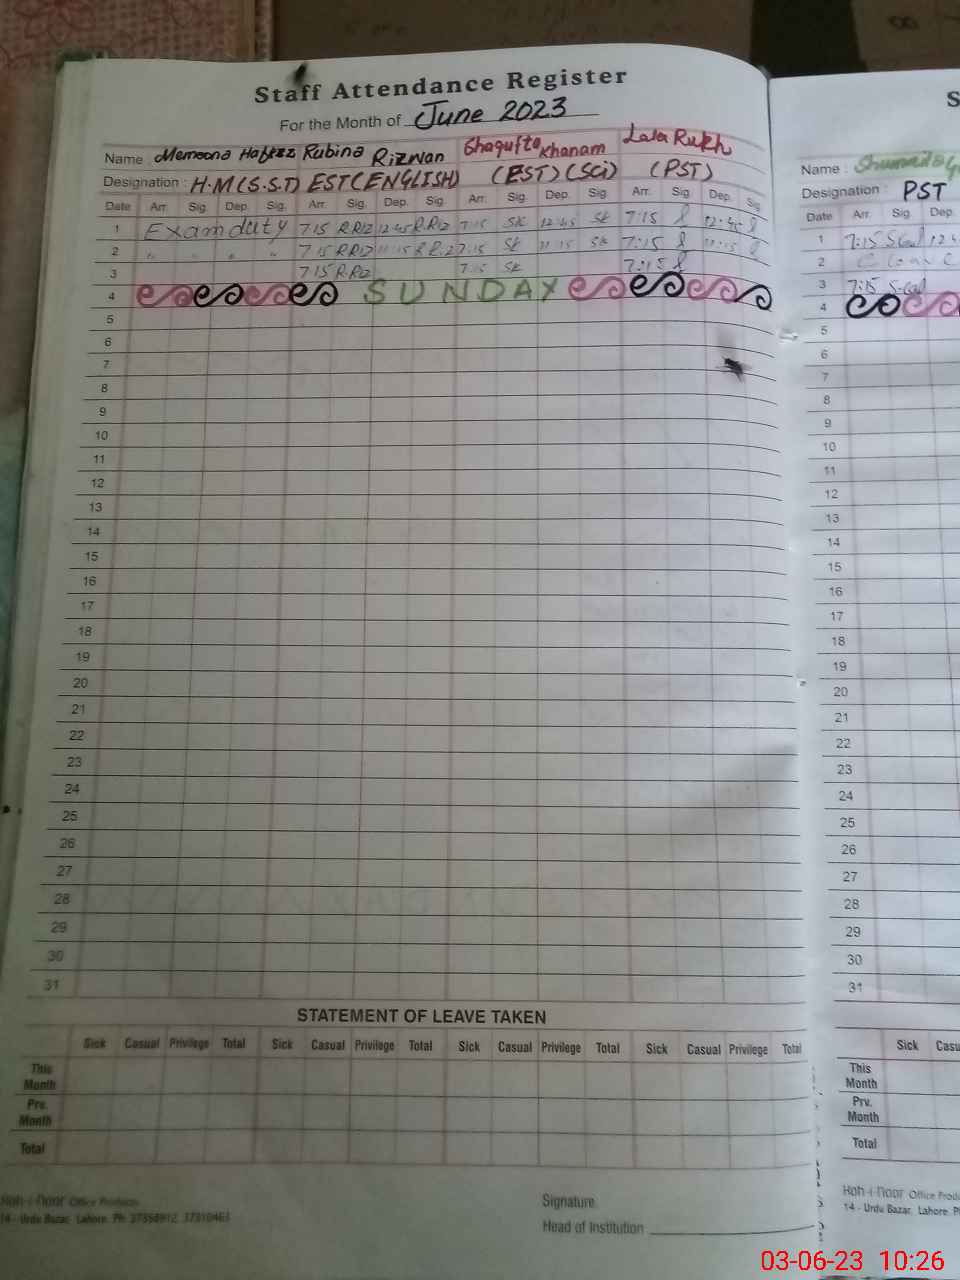 Staff Attendance Register
For the Month of June 2023
Name : Memoona Hafeez Rubina Rizwan Shagufta Khanam Lala Rukh
Designation : H.M(S.S.T) EST(ENGLISH) (EST)(SCi) (PST)
Date Arr. Sig. Dep. Sig. Arr. Sig. Dep. Sig. Arr. Sig. Dep. Sig. Arr. Sig. Dep. Sig.
1 Exam duty 7:15 R.Riz 12:45 R.Riz 7:15 SK 12:45 SK 7:15 12:45
2 " " " " 7:15 R.Riz 11:15 R.Riz 7:15 SK 11:15 SK 7:15 11:15
3 7:15 R.Riz 7:15 SK 7:15
4 SUNDAY
5
6
7
8
9
10
11
12
13
14
15
16
17
18
19
20
21
22
23
24
25
26
27
28
29
30
31
STATEMENT OF LEAVE TAKEN
Sick Casual Privilege Total Sick Casual Privilege Total Sick Casual Privilege Total Sick Casual Privilege Total
This Month
Prv. Month
Total
Koh-i-Noor Office Products
14 - Urdu Bazar, Lahore. Ph:
Signature
Head of Institution
S
Name :
Designation : PST
Date Arr. Sig. Dep.
1 7:15
2
3 7:15
4
5
6
7
8
9
10
11
12
13
14
15
16
17
18
19
20
21
22
23
24
25
26
27
28
29
30
31
Sick Casu
This Month
Prv. Month
Total
Koh-i-Noor Office Produ
14 - Urdu Bazar, Lahore. P
03-06-23 10:26